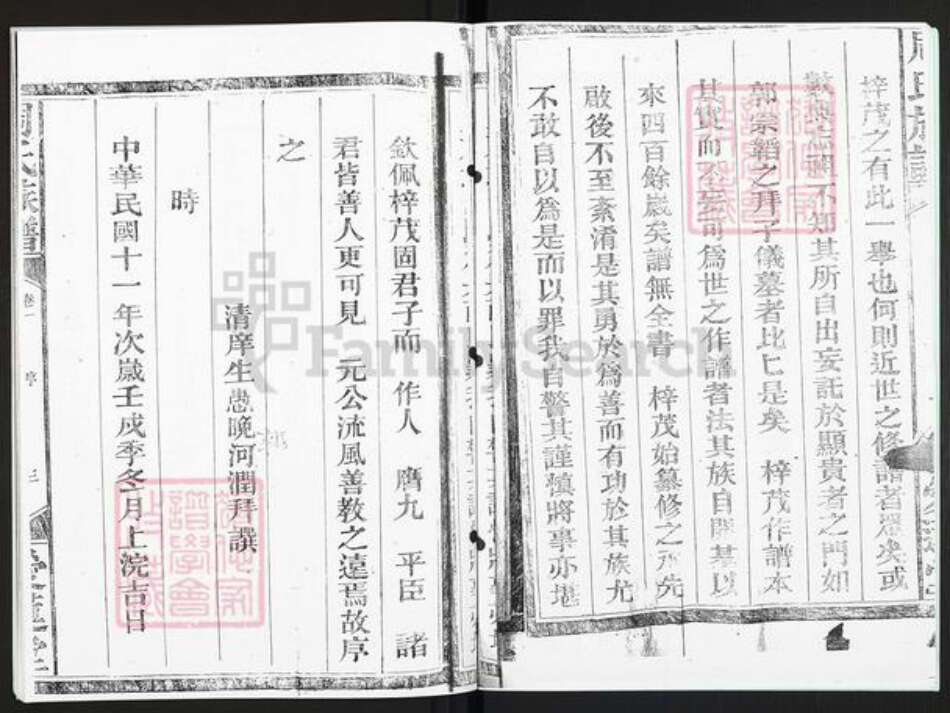 梓茂之有此一舉也何則近世之修譜者眾矣或
數典忘祖不知其所自出妄託於顯貴者之門如
郭崇韜之拜子儀墓者比比是矣 梓茂作譜本
其實而不 可為世之作譜者法其族自開基以
來四百餘歲矣譜無全書 梓茂始纂修之 先
啟後不至紊淆是其勇於為善而有功於其族尤
不敢自以為是而以罪我自警其謹慎將事亦堪
欽佩梓茂固君子而 作人 膺九 平臣 諸
君皆善人更可見 元公流風善教之遠焉故序
之
時
清庠生 晚河潤拜撰
中華民國十一年次歲壬戌季冬月上浣吉日
周氏族譜
卷一
序
三
FamilySearch